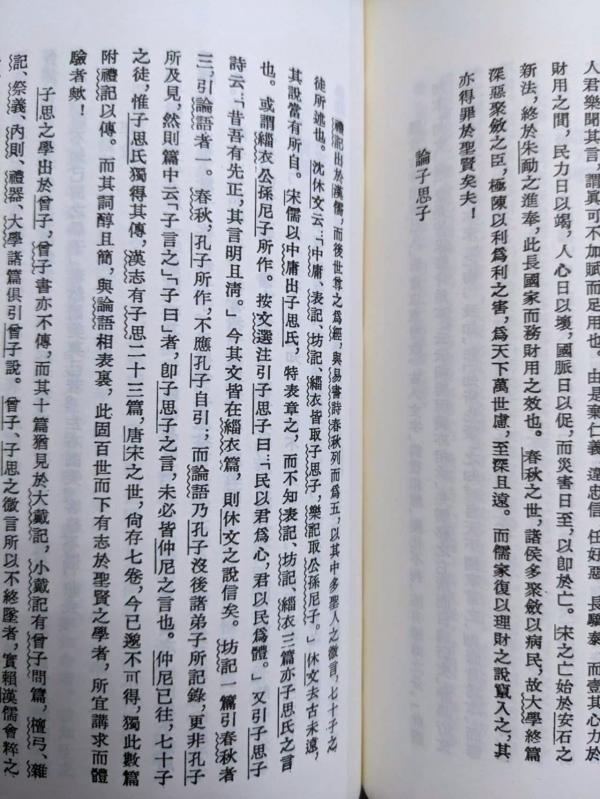 人君樂聞其言，謂真可不加賦而足用也。由是棄仁義，違忠信，任好惡，長驕泰，而壹其心力於
財用之間，民力日以竭，人心日以壞，國脈日以促，而災害日至，以卽於亡。宋之亡始於安石之
新法，終於朱勔之進奉，此長國家而務財用之效也。春秋之世，諸侯多聚斂以病民，故大學終篇
深惡聚斂之臣，極陳以利爲利之害，爲天下萬世慮，至深且遠。而儒家復以理財之說竄入之，其
亦得罪於聖賢矣夫！
論子思子
禮記出於漢儒，而後世尊之爲經，與易書詩春秋列而爲五，以其中多聖人之微言，七十子之
徒所述也。沈休文云：「中庸、表記、坊記、緇衣皆取子思子，樂記取公孫尼子。」休文去古未遠，
其說當有所自。宋儒以中庸出子思氏，特表章之，而不知表記、坊記、緇衣三篇亦子思氏之言
也。或謂緇衣公孫尼子所作。按文選注引子思子曰：「民以君爲心，君以民爲體。」又引子思子
詩云：「昔吾有先正，其言明且淸。」今其文皆在緇衣篇，則休文之說信矣。坊記一篇引春秋者
三，引論語者一。春秋，孔子所作，不應孔子自引；而論語乃孔子沒後諸弟子所記錄，更非孔子
所及見，然則篇中云「子言之」「子曰」者，卽子思子之言，未必皆仲尼之言也。仲尼已往，七十子
之徒，惟子思氏獨得其傳，漢志有子思二十三篇，唐宋之世，尙存七卷，今已邈不可得，獨此數篇
附禮記以傳。而其詞醇且簡，與論語相表裏，此固百世而下有志於聖賢之學者，所宜講求而體
驗者歟！
子思之學出於曾子，曾子書亦不傳，而其十篇猶見於大戴記，小戴記有曾子問篇，檀弓、雜
記、祭義、內則、禮器、大學諸篇俱引曾子說。曾子、子思之微言所以不終墜者，實賴漢儒會粹之